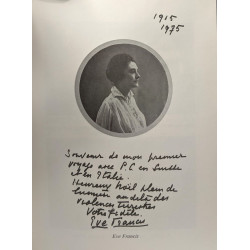 1915
1975
Souvenir de mon premier
voyage avec P.C en Suisse
et en Italie.
Heureux Noël plein de
lumière au delà des
violences terrestres
Votre fidèle.
Eve Francis
Eve Francis